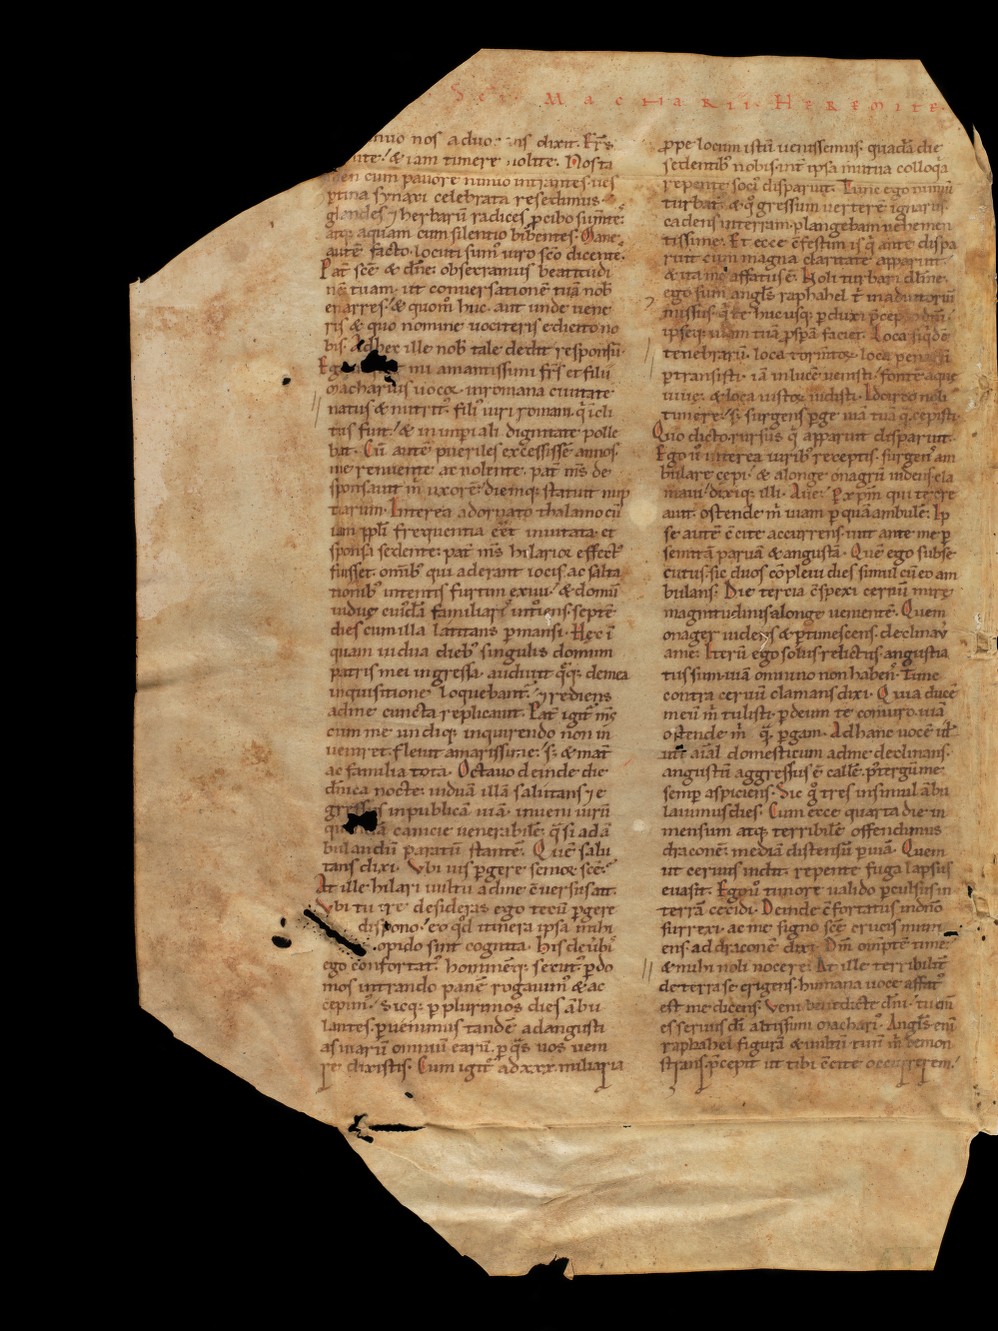 Sci. Macharii. Heremite.
nuo nos aduo dixit. Frs
& iam timere nolite. Posta
cum pauore nimio intrantes. ues
ptina synaxi celebrata resedimus
glandes ⁊ herbarū radices ꝑ cibo sum̄te:
atq; aquam cum silentio bibentes. Mane
autē facto. locuti sumꝰ uiro scō dicente.
Pat̄ scē & dn̄e. obsecramus beatitudi
nē tuam. ut conuersationē tuā nob
enarres. & quom̄ huc. aut unde uene
ris & quo nomine uociteris edicito no
bis. Adhec ille nob tale dedit responsū.
mi amantissimi frs̄ et filii
macharius uocor. inromana ciuitate
natus & nutritꝰ. filiꝰ uiri romani. q̄ icli
tus fuit. & in impiali dignitate polle
bat. Cū autē pueriles excessissē annos.
me renuente ac nolente. pat̄ ms̄ de
sponsauit m̄ uxorē. diemq; statuit nup
tiarum. Interea adornato thalamo cū
iam ppl̄i frequentia eēt inuitata. et
sponsa sedente. pat̄ ms̄ hilarior effectꝰ
fuisset. omībꝰ qui aderant iocis ac salta
tionibꝰ intentis furtim exiui. & domū
uidue cuidā familiari septē
dies cum illa latitans ꝑmansi. Hec ī
quam uidua diebꝰ singulis domum
patris mei ingressa. audiuit q̄q; demea
inquisitione loquebant. ⁊ rediens
adme cuncta replicauit. Pat̄ igit̄ ms̄
cum me undiq; inquirendo non in
ueniret. fleuit amarissime. & mat̄
ac familia tota. Octauo deinde die
dn̄ica nocte. uiduā illā salutans ⁊ e
gressus inpublicā uiā. inueni uirū
canicie uenerabilē. q̄si ad ā
bulandū paratū stantē. Quē salu
tans dixi. Vbi uis ꝑgere senior scē.
At ille hilari uultu adme ēuersus ait.
Vbi tu ire desideras ego tecū ꝑgere
dispono. eo qd itinera ipsa mihi
opido sint cognita. His de uībꝰ
ego confortatꝰ. hominēq; secutꝰ ꝑ do
mos intrando panē rogauimꝰ & ac
cepimꝰ. Sicq; ꝑ plurimos dies ābu
lantes. ꝑuenimus tandē ad angusti
as uiarū omniū earū. ꝑ q̄s uos ueni
re dixistis. Cum igit̄ ad xxx. miliaria
ꝓpe locum istū uenissemus. quadā die
sedentibꝰ nobis int̄ ipsa mutua colloq̄a
repente soci disparuit. Tunc ego nimiū
turbatꝰ. & q̊ gressum uertere ignarus
cadens interram. plangebam uehemen
tissime. Et ecce ēfestim is q̄ ante dispa
ruit cum magna claritate apparuit.
& ita me affatus ē. Noli turbari dilme.
ego sum angls̄ raphahel t̄ inadiutoriū
missus. q̄ te huc usq; ꝑduxi p̄cepto dn̄i.
ipseq; uiam tuā ꝓspā faciet. Loca siqdē
tenebrarū. loca tormtor. loca penarū
ꝑtransisti. iā inlucē uenisti. fontē aque
uiue. & loca iustor uidisti. Idcirco noli
timere. s; surgens ꝑge uiā tuā q̄ cepisti.
Quo dicto. rursus q̄ apparuit disparuit.
Ego ū interea uiribꝰ receptis. surgens am
bulare cepi. & a longe onagrū uidens cla
maui. dixiq; illi. Aue. Ꝑ xpm̄ qui te cre
auit. ostende m̄ uiam ꝑ quā ambulē. Ip
se autē ē cite accurrens. iuit ante me ꝑ
semitā paruā & angustā. Quē ego subse
cutus. sic duos cōpleui dies simul cū eo am
bulans. Die tercia ēspexi ceruū mire
magnitudinis alonge uenientē. Quem
onager uidens & ꝑtimescens. declinau
ame. Iterū ego solus relictus angustia
tus sum. uiā omnino non habens. Tunc
contra ceruū clamans dixi. Quia ducē
meū m̄ tulisti. ꝑ deum te coniuro. uiā
ostende m̄ q̄ ꝑgam. Adhanc uocē
aīal domesticum adme declinans.
angustū aggressus ē callē. p̄tergū me
semꝑ aspiciens. Sic q̊ tres insimul ābu
lauimus dies. Cum ecce quarta die in
mensum atq; terribilē offendimus
draconē. mediā distensū ꝑ uiam. Quem
ut ceruus uidit. repente fuga lapsus
euasit. Ego ū timore ualido ꝑculsus in
terrā cecidi. Deinde ēfortatus indn̄o
surrexi. ac me signo scē crucis muni
ens. ad draconē dixi. Dm̄ omptē time.
& mihi noli nocere. At ille terribilit̄
de terra se erigens. humana uoce affatꝰ
est me dicens. Veni benedicte dn̄i. tu enī
es seruus dī altissimi machariꝰ. Angls̄ enī
raphahel figurā & uultū tuū m̄ demon
strans. p̄cepit ut tibi ē cite occurrerem.